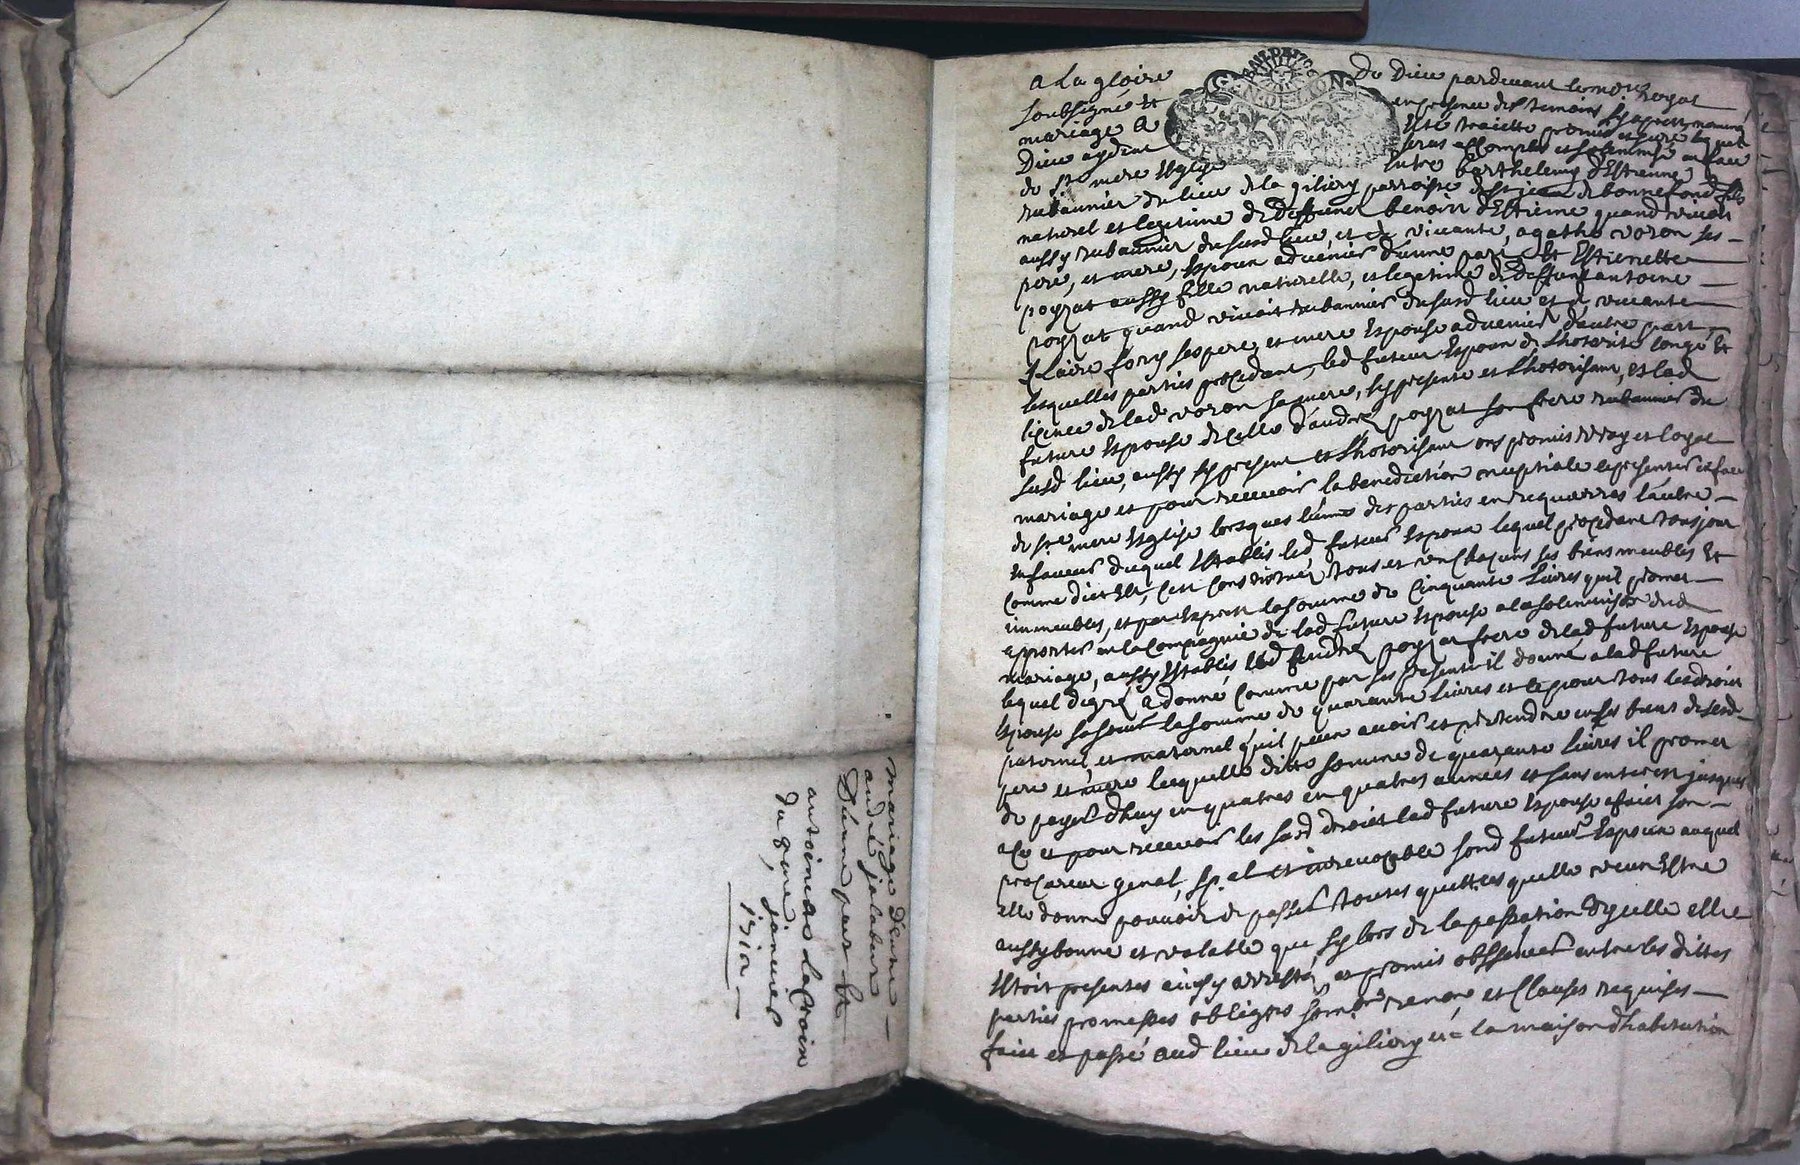 mariage d'entre
andré jalabeur
d'une part et
antoinette lacroix
du 8eme janvier
1710
BAIL DE 1706
GEN. DE LION
a La gloire de Dieu pardevant le no.re royal
soubsigné et en presence des temoins sy apres nommés
mariage a esté traitté promis et juré lequel
Dieu aydent seras accomply et solemnisé en face
de ste mere Esglise Entre barthelemy d'Estienne
rubannier du lieu de la giliery parroisse de st jean de bonnefond fils
naturel et legitime de deffunct benoist d'Estienne quand vivoit
aussy rubannier dususd lieu, et de vivante, agathe voron ses
pere, et mere, Espoux advenir d'une part Et Estiennette
poyzat aussy fille naturelle, et legitime de deffunt antoine
poyzat quand vivoit rubannier dususd lieu et de vivante
Claire fory ses pere, et mere Espouse advenir d'autre part
lesquelles parties procedant, led futeur Espoux de Lhotorité congé Et
licence de lad voron sa mere, sy presente et Lhotorisant, et lad
future Espouse de celle d'andré poyzat son frere rubannier du
susd lieu, aussy sy present et Lhotorisant ont promis vray et loyal
mariage et pour recevoir la benediction nuptiale se presenter en face
de ste mere Esglise lorsques l'une des parties en requerras l'autre
En faveur duquel Establis led futeur Espoux lequel procedant tousjour
Comme dict Est, cest constitué tous et un chacuns ses biens meubles Et
immeubles, et par Expres la somme de Cinquante Livres quil promet
apporter en la Compagnie de lad future Espouse a la solemnisation dud
mariage, aussy Establis led andré poyzat frere de lad future Espouse
lequel de gré a donné comme par ses presente il donne a lad future
Espouse sa soeur la somme de quarante livres et ce pour tous les droict
paternel, et maternel quil peux avoir et pretendre en ses biens de sesd
pere et mere lacquelle ditte somme de quarante livres il promet
de payer d'huy en quatres en quatres années et sans interest jusques
a ce et pour recevoir les susd droict lad future Espouse a faict son
procureur genal, sp.al et irrevocable sond futeur Espoux auquel
elle donne pouvoir de passer toutes quittes quelle veux Estre
aussy bonne et valable que sy lors de la passation d'ycelle elle
Estoit presentes ainsy arresté et promis observer entre les dittes
parties promesses obligons serment renon et Clauses requises
faict et passé aud lieu de la giliery en la maison d'habitation